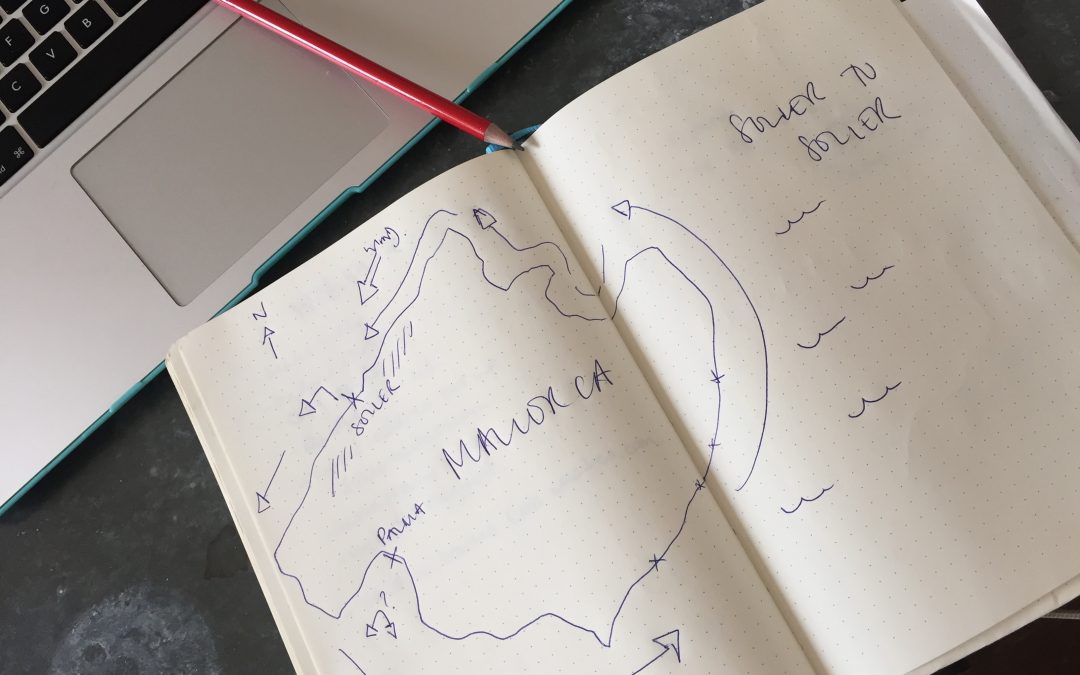 G
F
B
V
C
⌘
SOLLER TO
SOLLER
WIND
N
SOLLER
MALLORCA
PALMA
?